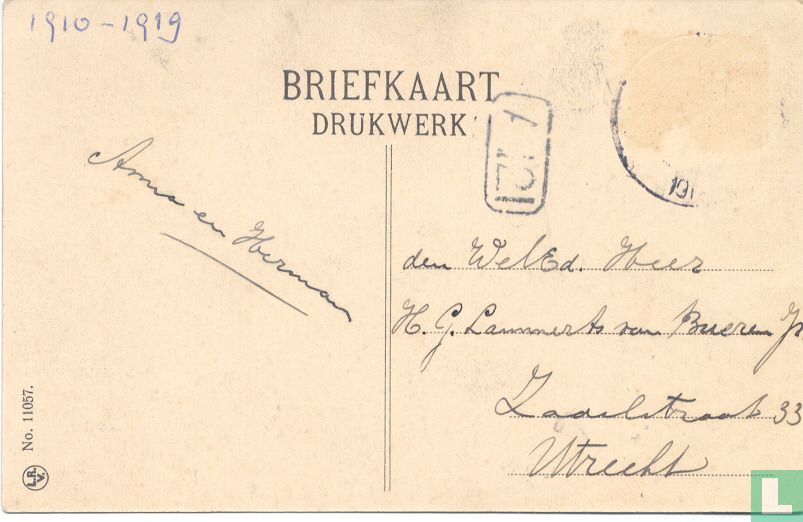 1910-1919
BRIEFKAART
DRUKWERK
Anna en Herman
den WelEd. Heer
H. G. Lammerts van Bueren Jr
Zadelstraat 33
Utrecht
No. 11057.
L.R.
V.
191
L